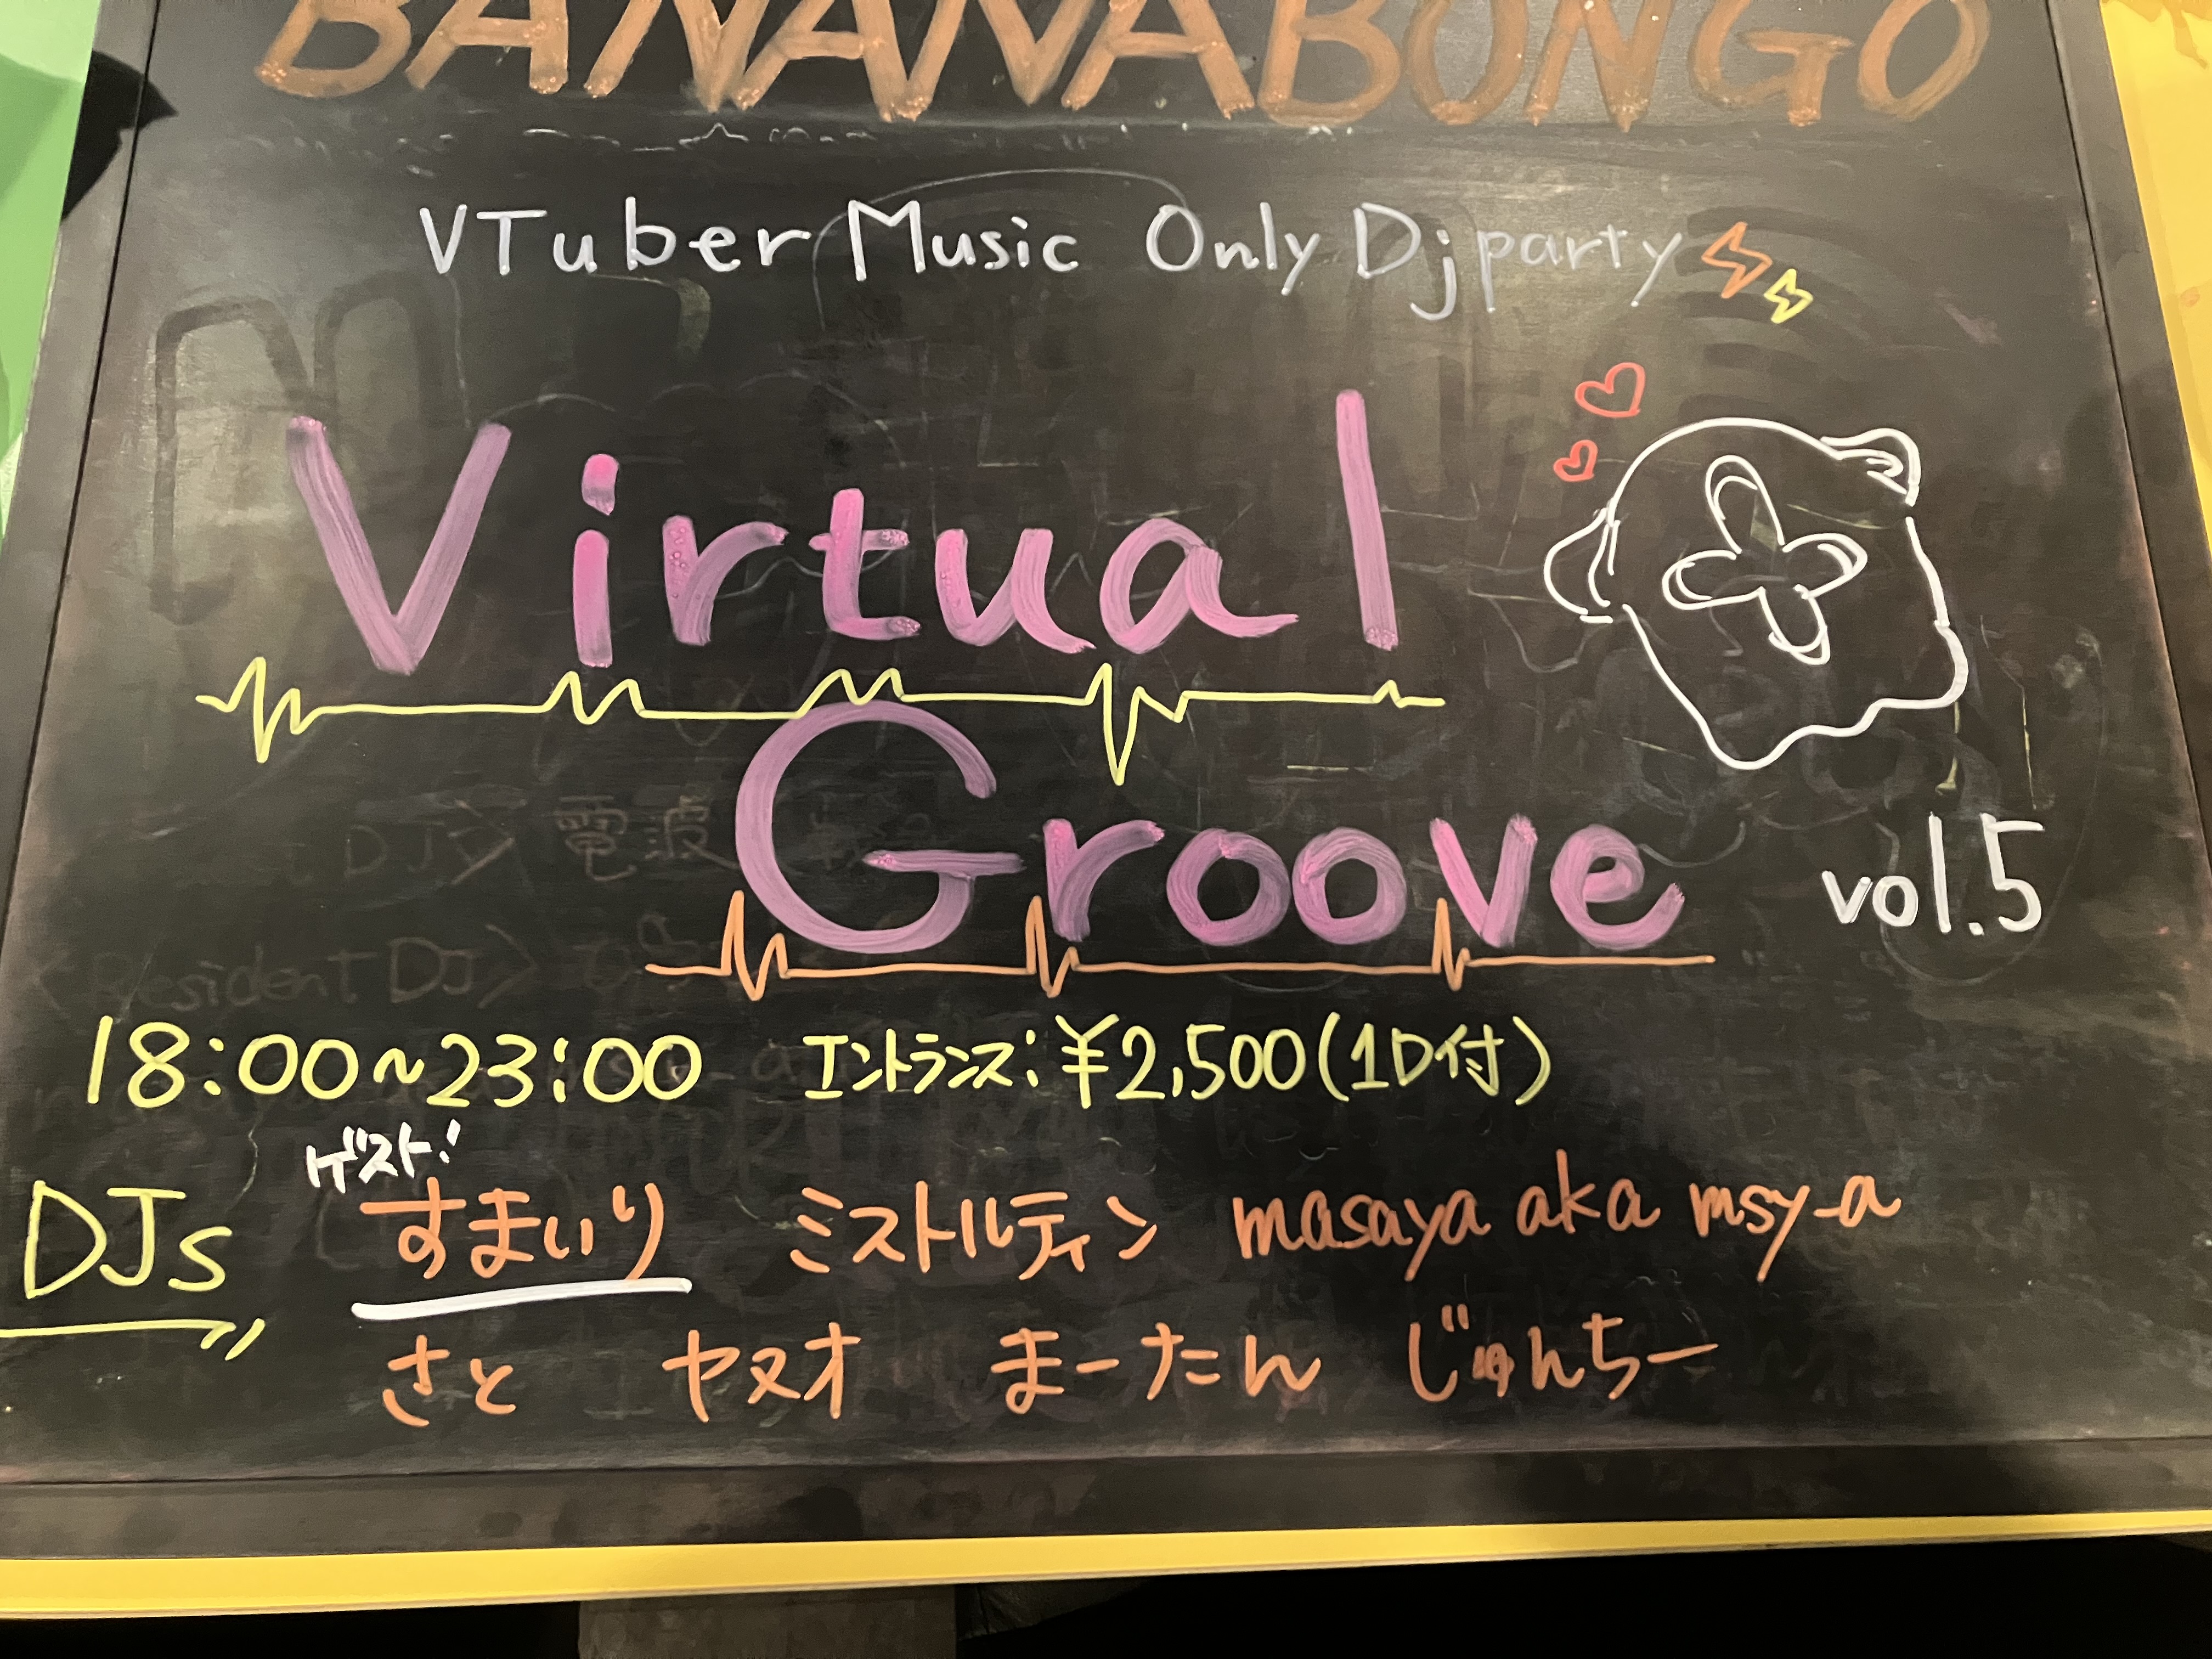 BANANABONGO
VTuber Music Only Dj party
Virtual
Groove
vol.5
18:00~23:00 エントランス:¥2,500(1D付)
ゲスト!
DJs すまいり ミストルティン masaya aka msy-a
さと ヤヌオ まーたん じゅんちー